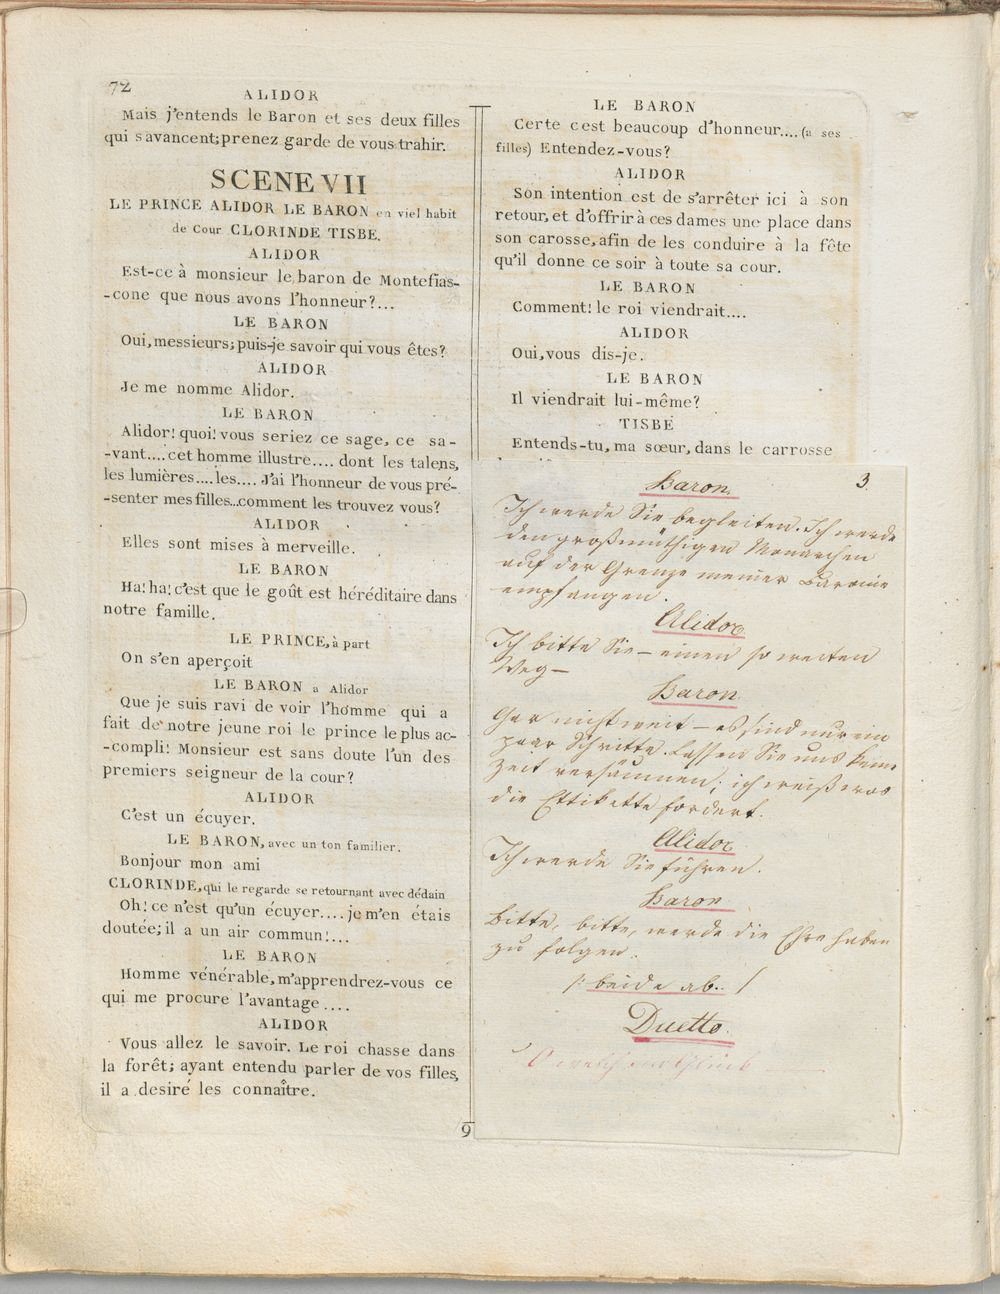 72
ALIDOR
Mais j'entends le Baron et ses deux filles
qui s'avancent; prenez garde de vous trahir.
SCENE VII
LE PRINCE ALIDOR LE BARON en viel habit
de Cour CLORINDE TISBE.
ALIDOR
Est-ce à monsieur le baron de Montefias-
-cone que nous avons l'honneur?...
LE BARON
Oui, messieurs; puis-je savoir qui vous êtes?
ALIDOR
Je me nomme Alidor.
LE BARON
Alidor! quoi! vous seriez ce sage, ce sa-
-vant.... cet homme illustre.... dont les talens,
les lumières.... les.... J'ai l'honneur de vous pré-
-senter mes filles...comment les trouvez vous?
ALIDOR
Elles sont mises à merveille.
LE BARON
Ha! ha! c'est que le goût est héréditaire dans
notre famille.
LE PRINCE, à part
On s'en aperçoit
LE BARON a Alidor
Que je suis ravi de voir l'homme qui a
fait de notre jeune roi le prince le plus ac-
-compli! Monsieur est sans doute l'un des
premiers seigneur de la cour?
ALIDOR
C'est un écuyer.
LE BARON, avec un ton familier.
Bonjour mon ami
CLORINDE, qui le regarde se retournant avec dédain
Oh! ce n'est qu'un écuyer.... je m'en étais
doutée; il a un air commun!...
LE BARON
Homme vénérable, m'apprendrez-vous ce
qui me procure l'avantage....
ALIDOR
Vous allez le savoir. Le roi chasse dans
la forêt; ayant entendu parler de vos filles,
il a desiré les connaître.
LE BARON
Certe c'est beaucoup d'honneur.... (a ses
filles) Entendez-vous?
ALIDOR
Son intention est de s'arrêter ici à son
retour, et d'offrir à ces dames une place dans
son carosse, afin de les conduire à la fête
qu'il donne ce soir à toute sa cour.
LE BARON
Comment! le roi viendrait....
ALIDOR
Oui, vous dis-je.
LE BARON
Il viendrait lui-même?
TISBE
Entends-tu, ma sœur, dans le carrosse
3.
Baron.
Ich werde Sie begleiten. Ich werde
den großmüthigen Monarchen
auf der Grenze meiner Baronie
empfangen.
Alidor.
Ich bitte Sie – einen so weiten
Weg –
Baron.
Gar nicht weit – es sind nur ein
paar Schritte. Lassen Sie uns keine
Zeit versäumen; ich weiß was
die Ettikette fordert.
Alidor.
Ich werde Sie führen.
Baron.
Bitte, bitte, werde die Ehre haben
zu folgen.
/: beide ab. /
Duetto.
O welch ein Glück
9